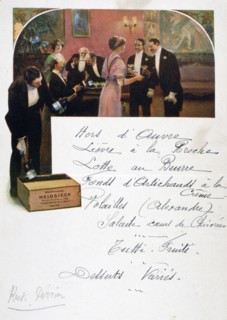 HEIDSIECK
Hors d'Œuvre
Lièvre à la Broche
Lotte au Beurre
Fonds d'Artichauds à la
Crème
Volailles (Alexandre)
Salade cœur de Chicorée
Tutti-Fruits
Desserts Variés.